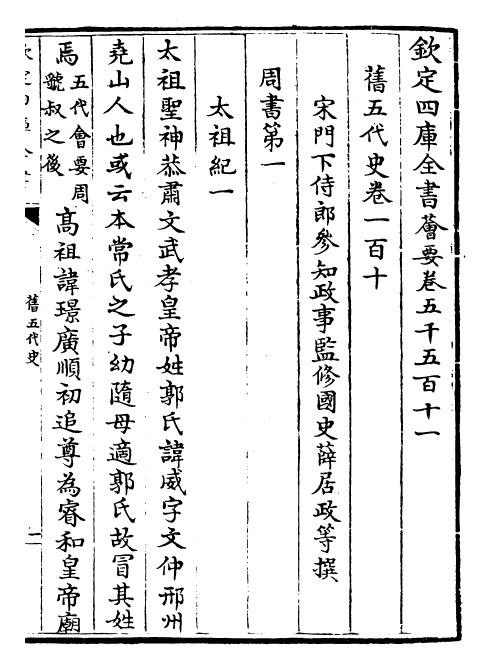 欽定四庫全書薈要卷五千五百十一
舊五代史卷一百十
宋門下侍郎參知政事監修國史薛居政等撰
周書第一
太祖紀一
太祖聖神恭肅文武孝皇帝姓郭氏諱威字文仲邢州
堯山人也或云本常氏之子幼隨母適郭氏故冒其姓
焉五代會要周虢叔之後高祖諱璟廣順初追尊為睿和皇帝廟
舊五代史